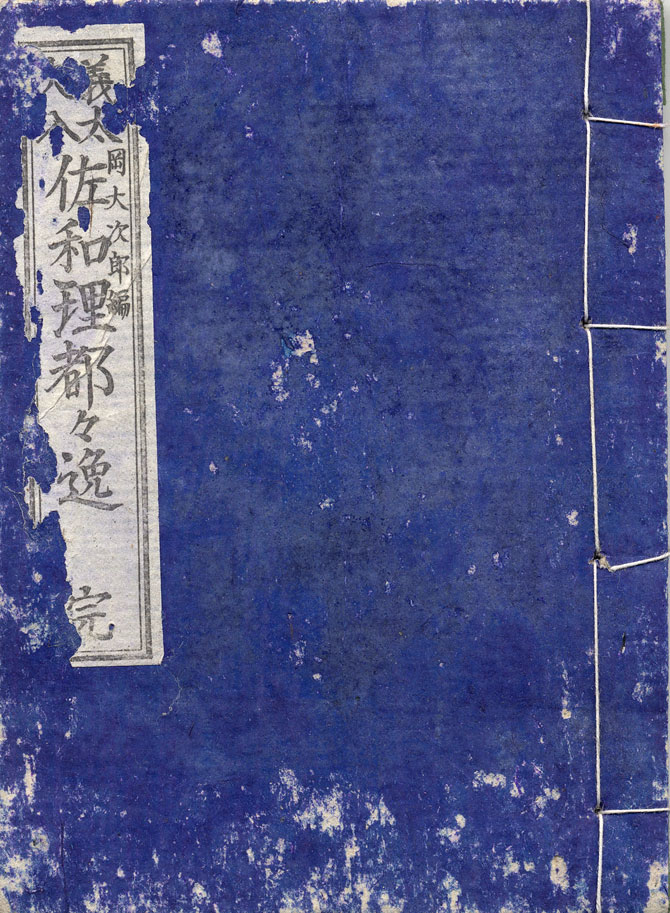 義太
夫入
岡大次郎編
佐和理都々逸 完